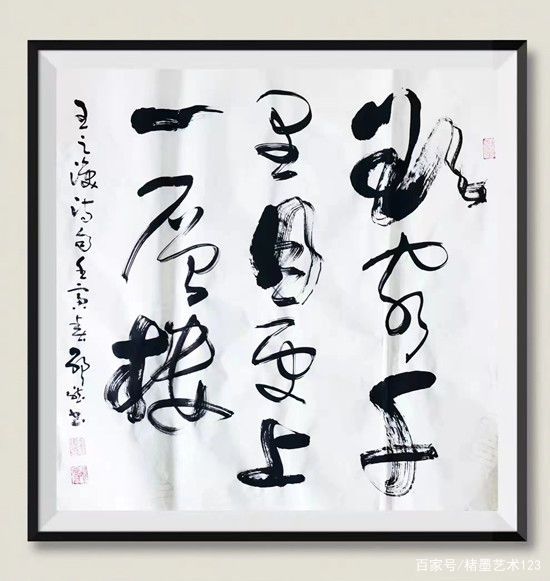 欲穷千
里目更上
一层楼
王之涣诗句壬寅春
百家号/楮墨艺术123